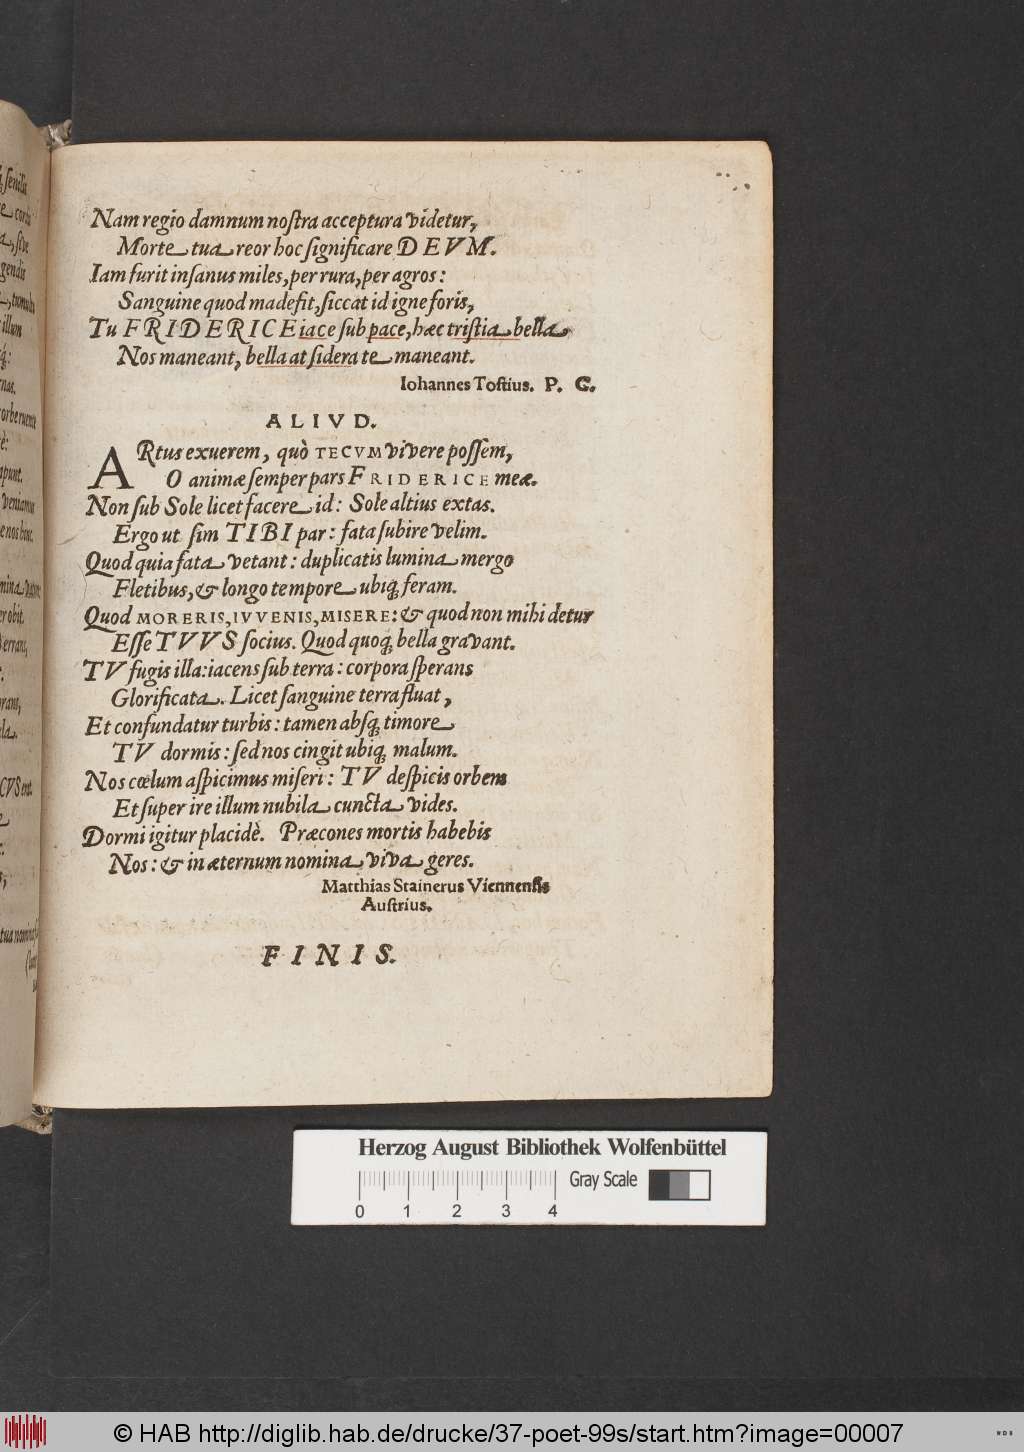 Nam regio damnum noſtra acceptura videtur,
Morte tua reor hoc ſignificare DEVM.
Iam furit inſanus miles, per rura, per agros:
Sanguine quod madeſit, ſiccat id igne foris,
Tu FRIDERICE iace ſub pace, hæc triſtia bella
Nos maneant, bella at ſidera te maneant.
Iohannes Toſtius. P. C.
ALIVD.
ARtus exuerem, quò TECVM vivere poſſem,
O animæ ſemper pars FRIDERICE meæ.
Non ſub Sole licet facere id: Sole altius extas.
Ergo ut ſim TIBI par: fata ſubire velim.
Quod quia fata vetant: duplicatis lumina mergo
Fletibus, & longo tempore ubiq; feram.
Quod MORERIS, IVVENIS, MISERE: & quod non mihi detur
Eſſe TVVS ſocius. Quod quoq; bella gravant.
TV fugis illa: iacens ſub terra: corpora ſperans
Glorificata. Licet ſanguine terra fluat,
Et confundatur turbis: tamen abſq; timore
TV dormis: ſed nos cingit ubiq; malum.
Nos cœlum aſpicimus miſeri: TV deſpicis orbem
Et ſuper ire illum nubila cuncta vides.
Dormi igitur placidè. Præcones mortis habebis
Nos: & in æternum nomina viva geres.
Matthias Stainerus Viennenſis
Auſtrius.
FINIS.
Herzog August Bibliothek Wolfenbüttel
Gray Scale
0 1 2 3 4
© HAB http://diglib.hab.de/drucke/37-poet-99s/start.htm?image=00007